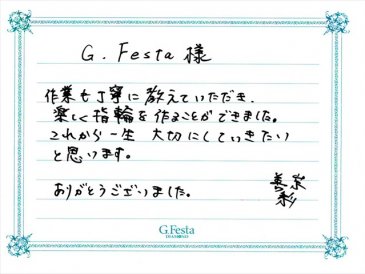 G. Festa 様
作業も丁寧に教えていただき、
楽しく指輪を作ることができました。
これから一生 大切にしていきたい
と思います。
ありがとうございました。
G.Festa
DIAMOND